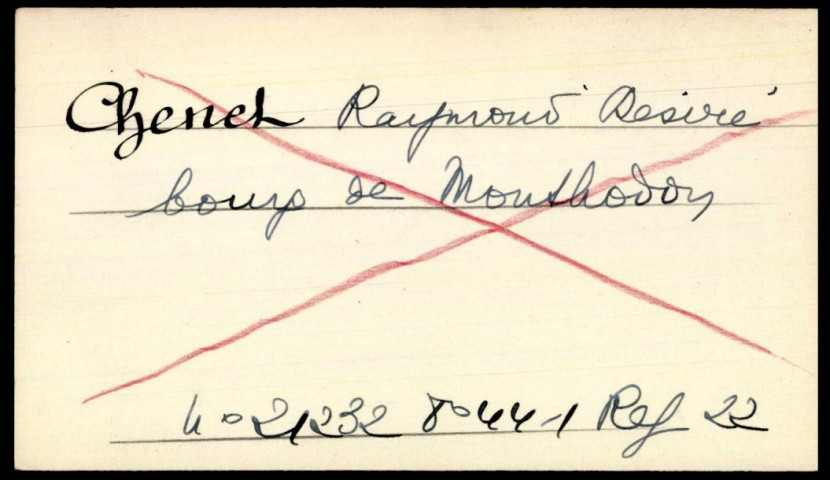 Chenet Raymond Desiré
bourg de Monthodon
N° 21232 F° 44-1 Reg 22